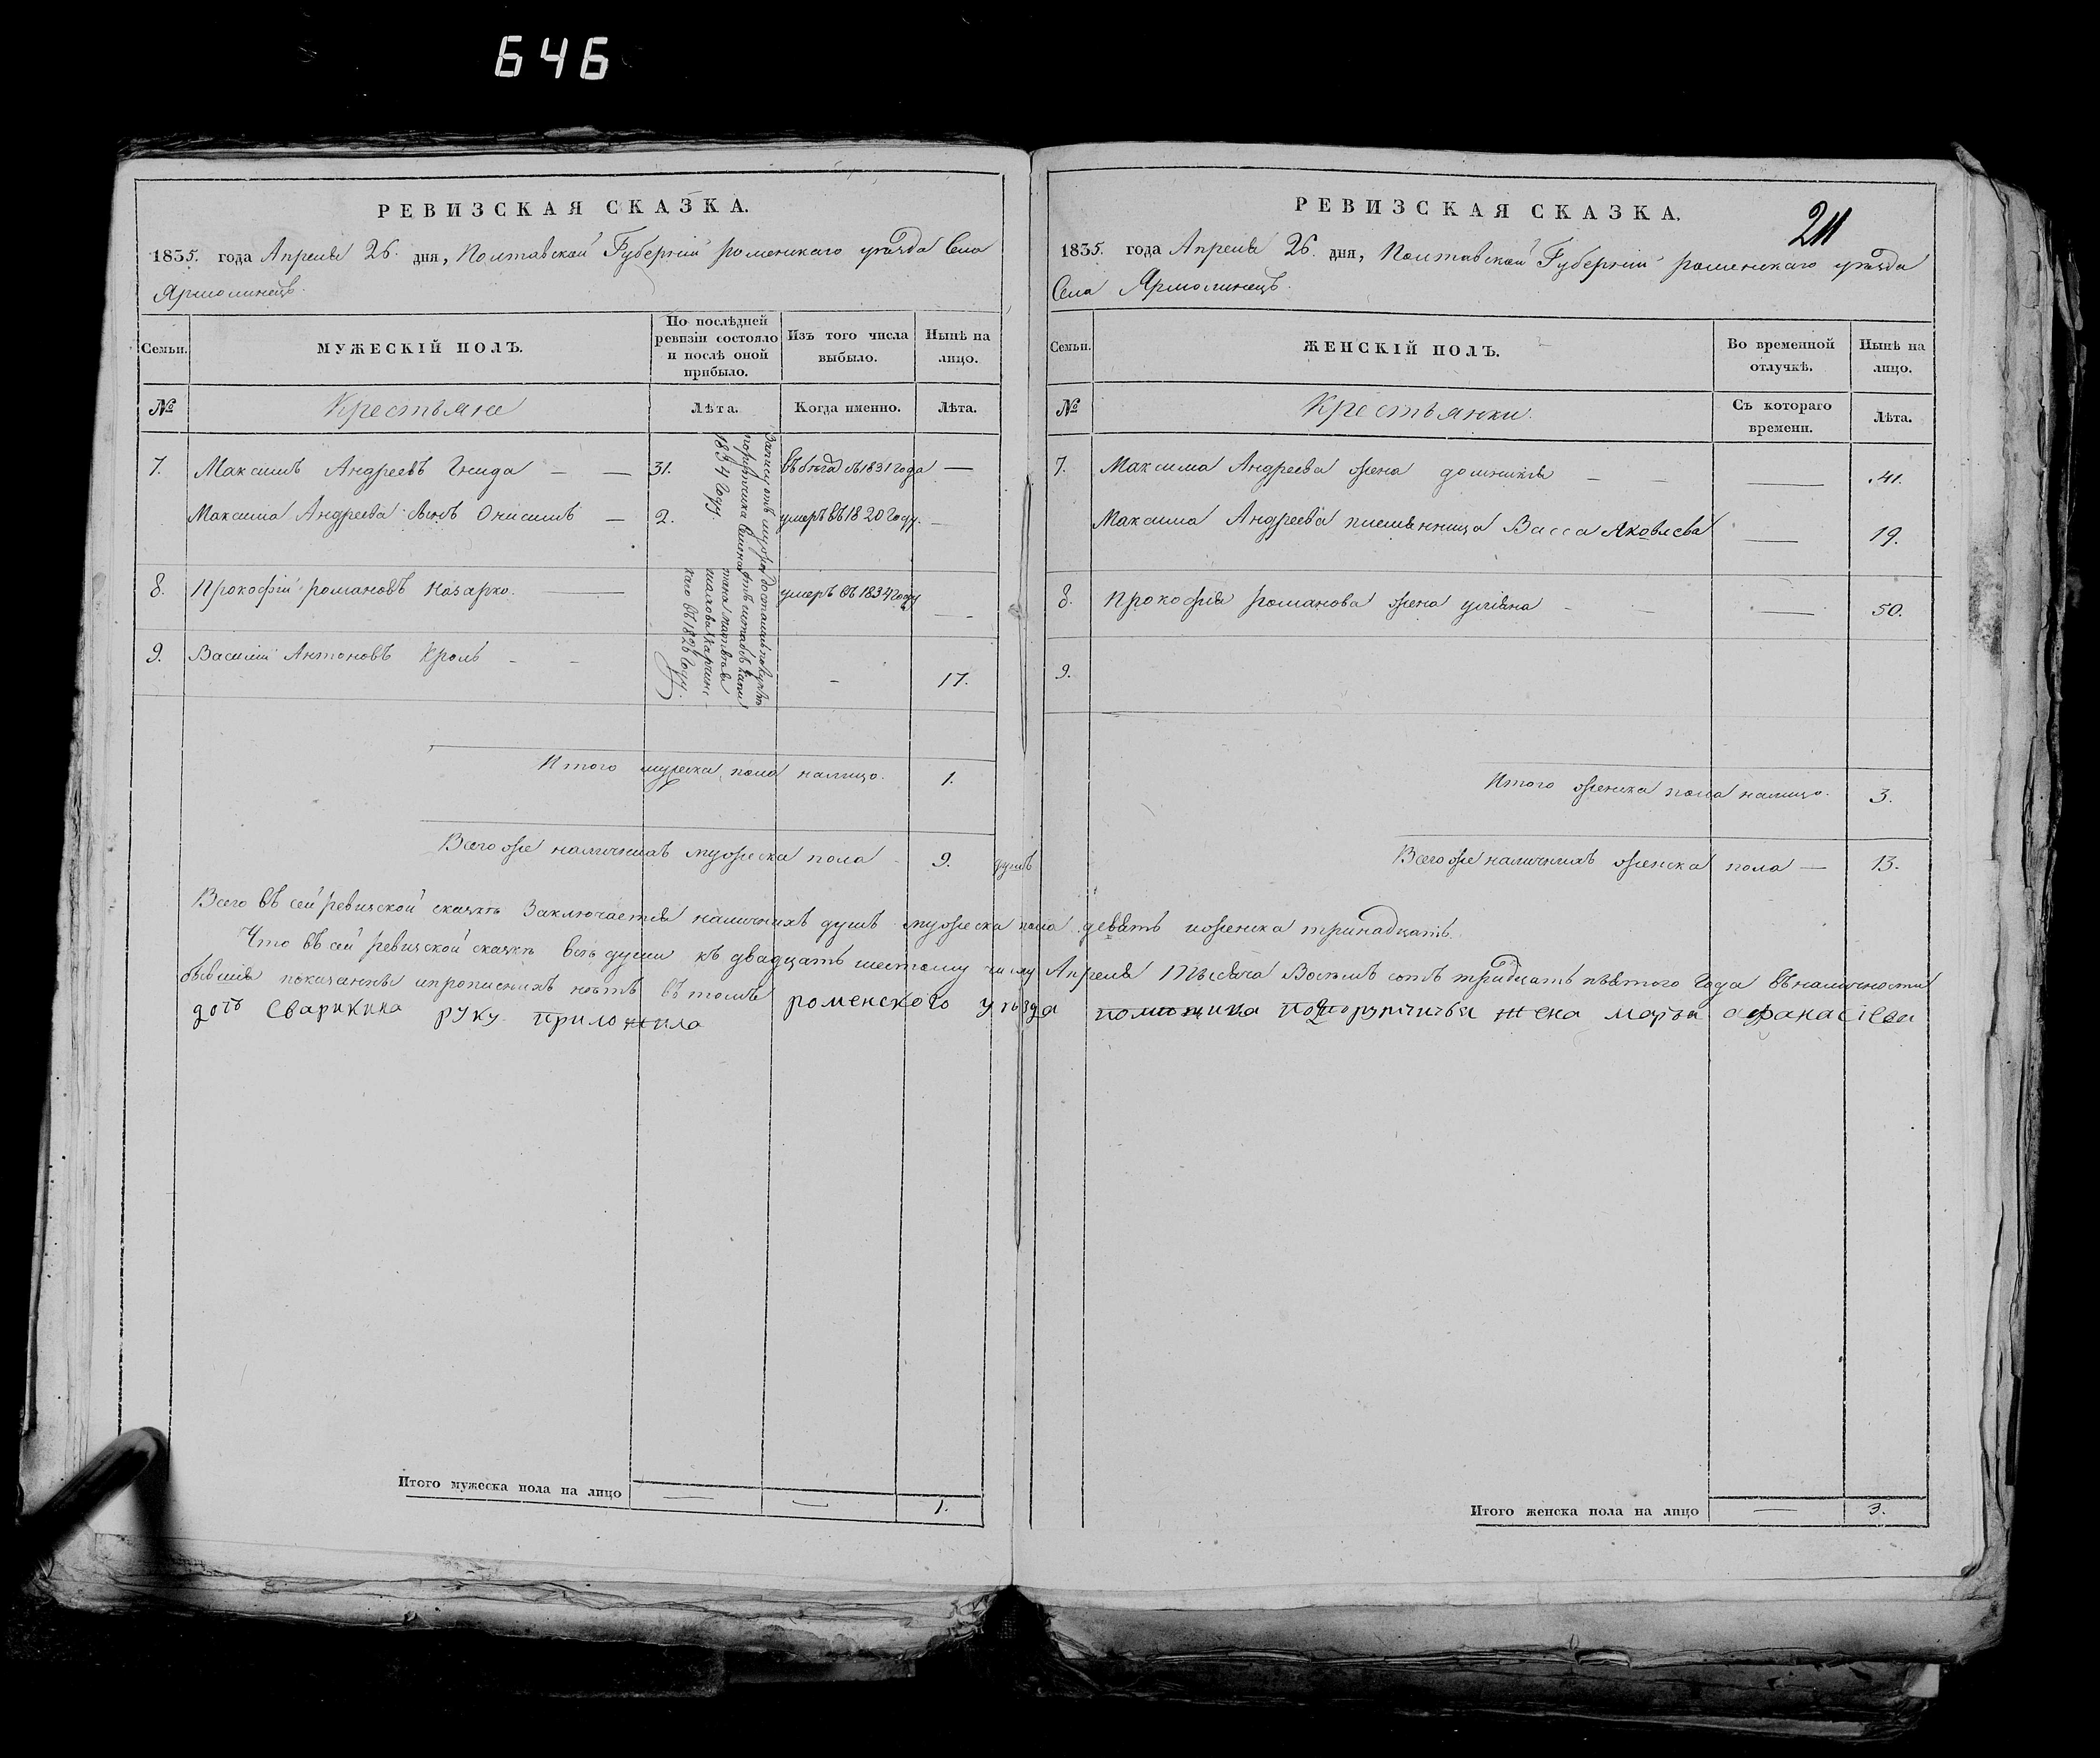 646
РЕВИЗСКАЯ СКАЗКА.
1835. года Апреля 26. дня, Полтавской Губерніи роменскаго уезда Села
Ярмолинецъ.
Семьи.
МУЖЕСКІЙ ПОЛЪ.
По послѣдней ревизіи состояло и послѣ оной прибыло.
Изъ того числа выбыло.
Нынѣ на лицо.
№
Крестьяне
Лѣта.
Когда именно.
Лѣта.
7. Максимъ Андреевъ Гнида — — 31. въ бегах съ 1831 года —
Максима Андреева сынъ Онисимъ — 2. умеръ въ 1820 году. —
8. Прокофій романовъ Назарко. — умеръ въ 1834 году —
9. Василій Антоновъ Кроль - - - 17.
1834 году.
Итого мужеска пола налицо. 1.
Всего же наличнихъ мужеска пола 9. душъ
РЕВИЗСКАЯ СКАЗКА.
211
1835. года Апреля 26. дня, Полтавской Губерніи роменскаго уезда
Села Ярмолинецъ.
Семьи.
ЖЕНСКІЙ ПОЛЪ.
Во временной отлучкѣ.
Нынѣ на лицо.
№
Крестьянки.
Съ котораго времени.
Лѣта.
7. Максима Андреева жена домникія — — — 41.
Максима Андреева племянница Васса Яковлева — 19.
8. Прокофія романова жена уліяна - - — 50.
9.
Итого женска пола налицо. 3.
Всего же наличнихъ женска пола — 13.
Всего въ сей ревизской сказкѣ Заключается наличнихъ душъ мужеска пола девять иженска тринадцать.
Что въ сей ревизской сказкѣ всѣ души къ двадцать шестому числу Апреля 1 Тысяча Восемь сотъ тридцать пятого года въ наличности
бывшія показанны ипрописнихъ нѣтъ въ томъ роменского уезда помищица подпорутчичья жена марѳа афанасіева
дотъ Сварикина руку приложила
Итого мужеска пола на лицо — — 1.
Итого женска пола на лицо — 3.